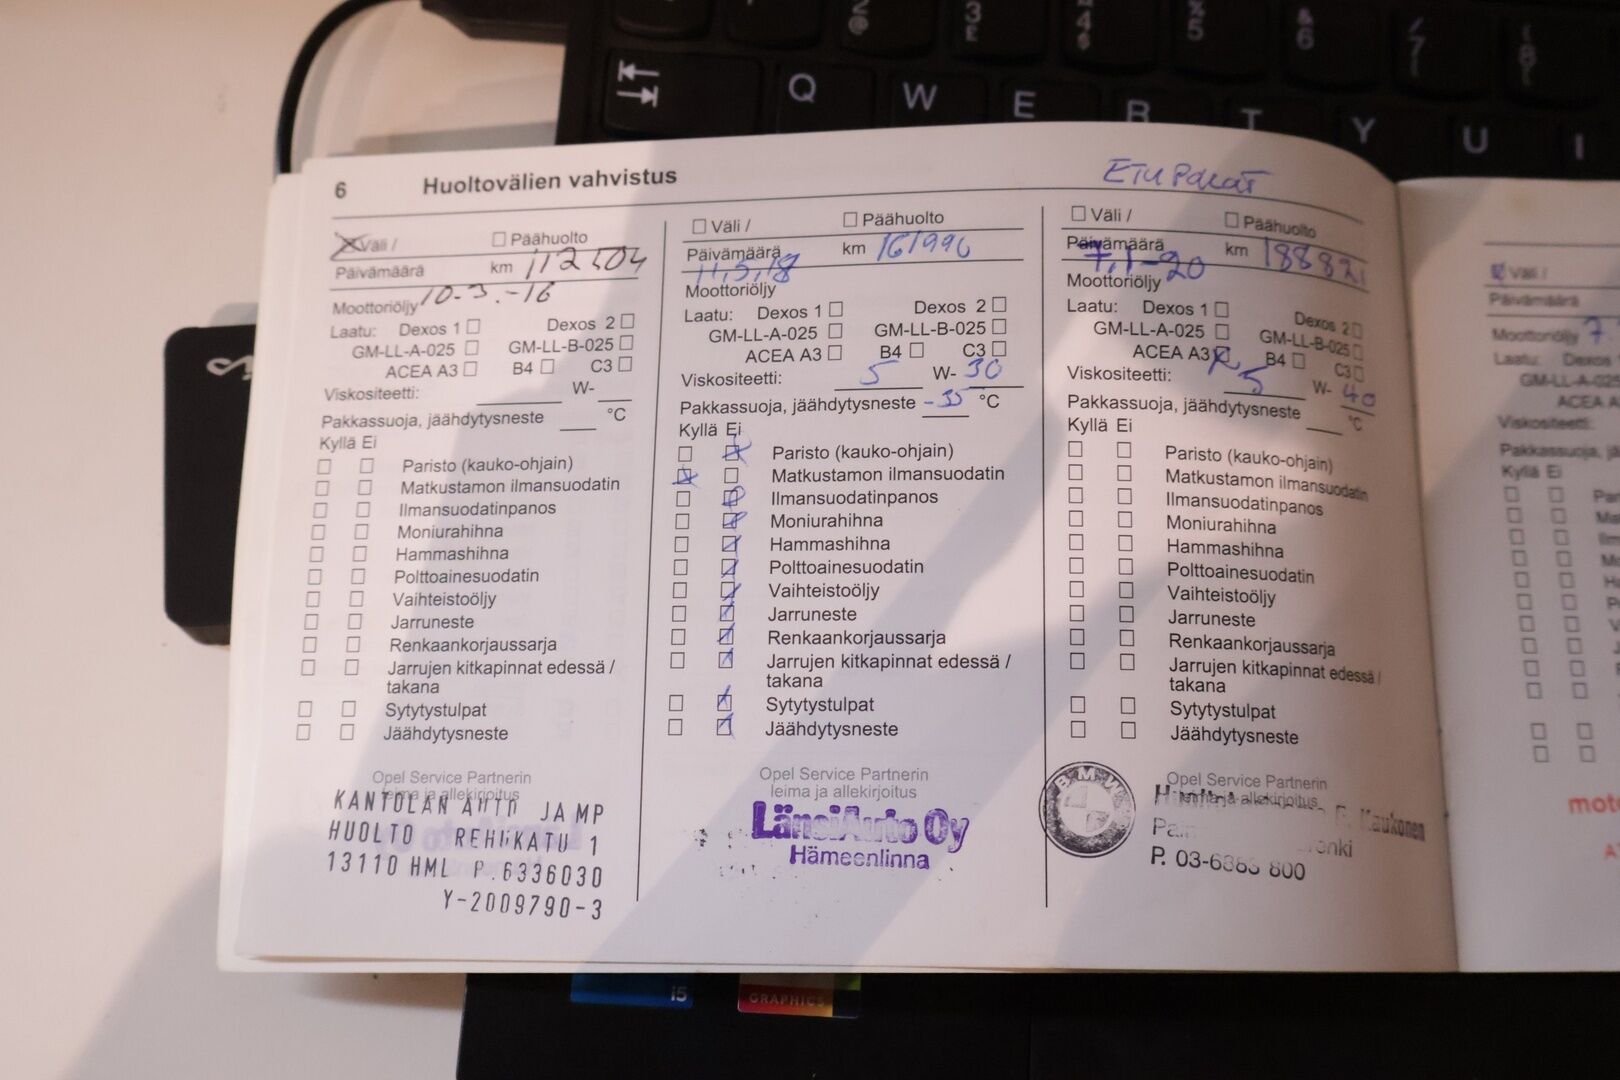 Q W E R T Y U I
6 Huoltovälien vahvistus
ETU PALAT
Väli / Päähuolto
Päivämäärä km 112504
Moottoriöljy 10.3.-16
Laatu: Dexos 1 Dexos 2
GM-LL-A-025 GM-LL-B-025
ACEA A3 B4 C3
Viskositeetti: W-
Pakkassuoja, jäähdytysneste °C
Kyllä Ei
Paristo (kauko-ohjain)
Matkustamon ilmansuodatin
Ilmansuodatinpanos
Moniurahihna
Hammashihna
Polttoainesuodatin
Vaihteistoöljy
Jarruneste
Renkaankorjaussarja
Jarrujen kitkapinnat edessä /
takana
Sytytystulpat
Jäähdytysneste
Opel Service Partnerin
leima ja allekirjoitus
KANTOLAN AUTO JA MP
HUOLTO REHUKATU 1
13110 HML P 6336030
Y-2009790-3
Väli / Päähuolto
Päivämäärä km 161996
11,5,18
Moottoriöljy
Laatu: Dexos 1 Dexos 2
GM-LL-A-025 GM-LL-B-025
ACEA A3 B4 C3
Viskositeetti: 5 W- 30
Pakkassuoja, jäähdytysneste -35 °C
Kyllä Ei
Paristo (kauko-ohjain)
Matkustamon ilmansuodatin
Ilmansuodatinpanos
Moniurahihna
Hammashihna
Polttoainesuodatin
Vaihteistoöljy
Jarruneste
Renkaankorjaussarja
Jarrujen kitkapinnat edessä /
takana
Sytytystulpat
Jäähdytysneste
Opel Service Partnerin
leima ja allekirjoitus
LänsiAuto Oy
Hämeenlinna
Väli / Päähuolto
Päivämäärä km 188821
7,1-20
Moottoriöljy
Laatu: Dexos 1 Dexos 2
GM-LL-A-025 GM-LL-B-025
ACEA A3 B4 C3
Viskositeetti: 5 W- 40
Pakkassuoja, jäähdytysneste °C
Kyllä Ei
Paristo (kauko-ohjain)
Matkustamon ilmansuodatin
Ilmansuodatinpanos
Moniurahihna
Hammashihna
Polttoainesuodatin
Vaihteistoöljy
Jarruneste
Renkaankorjaussarja
Jarrujen kitkapinnat edessä /
takana
Sytytystulpat
Jäähdytysneste
Opel Service Partnerin
leima ja allekirjoitus
BMW
Kaukonen
P. 03-6383 800
Väli /
Päivämäärä
Moottoriöljy 7
Laatu: Dexos
ACEA
Viskositeetti:
Kyllä Ei
i5
GRAPHICS